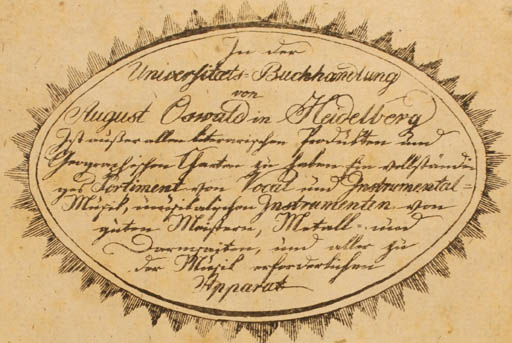 In der
Universitäts-Buchhandlung
von
August Oswald in Heidelberg
Ist außer allen literarischen Produkten und
Geographischen Charten zu haben Ein vollständi-
ges Sortiment von Vocal und Instrumental-
Musik, musikalischen Instrumenten von
guten Meistern, Metall- und
Darmsaiten, und aller zu
der Musik erforderlichen
Apparat